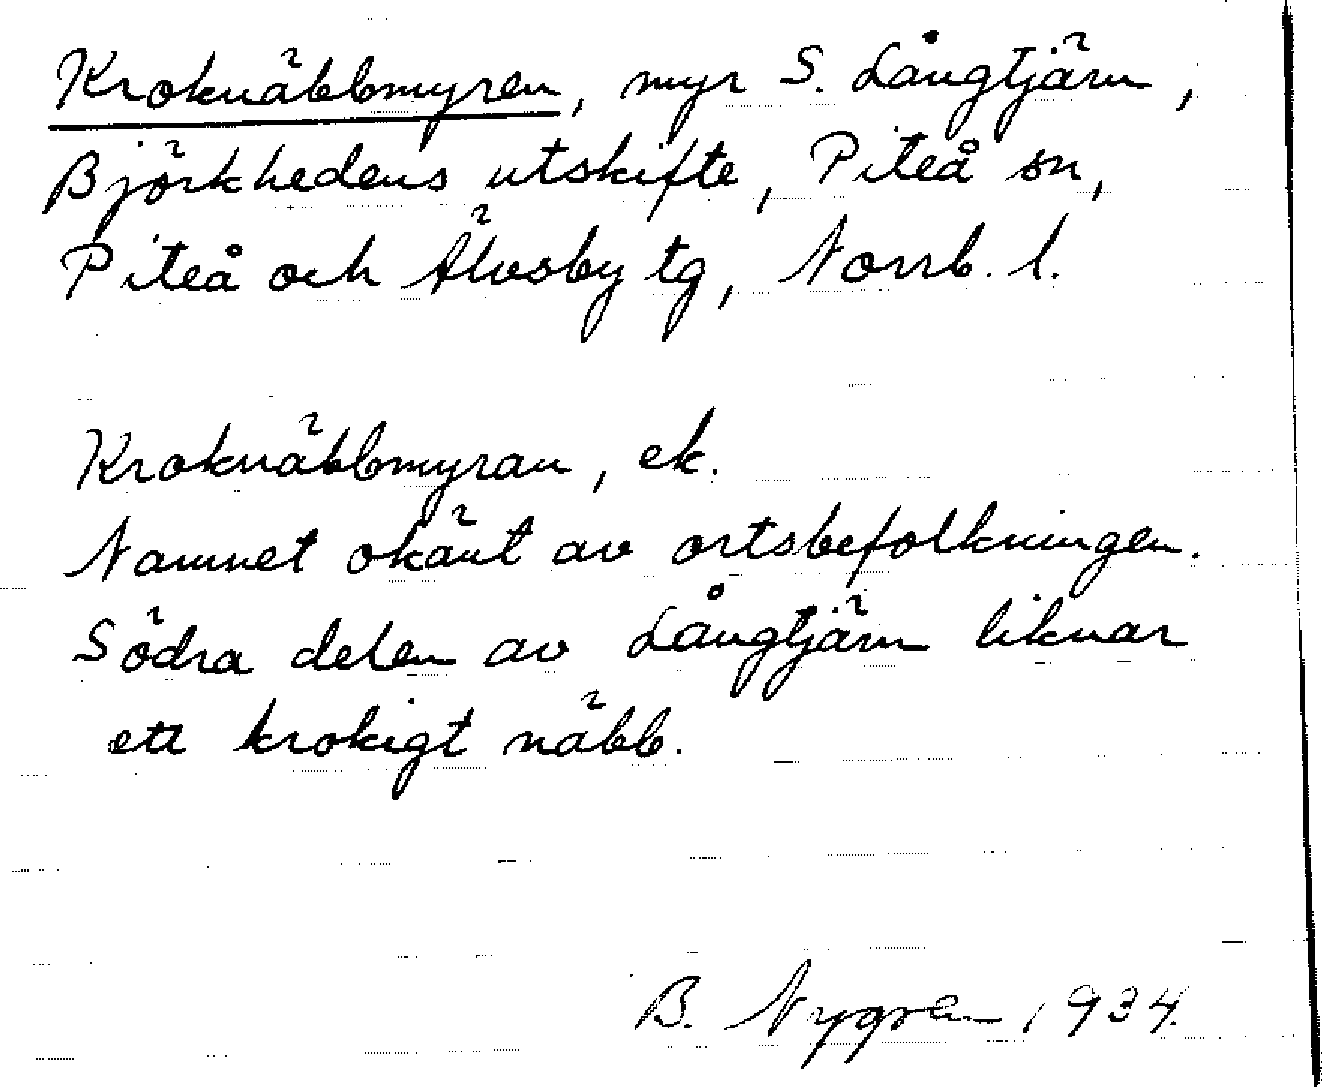 Kroknäbbmyren, myr S. Långtjärn,
Björkhedens utskifte, Piteå sn,
Piteå och Älvsby tg, Norrb. l.
Kroknäbbmyran, ek.
Namnet okänt av ortsbefolkningen.
Södra delen av Långtjärn liknar
ett krokigt näbb.
B. Nygren 1934.